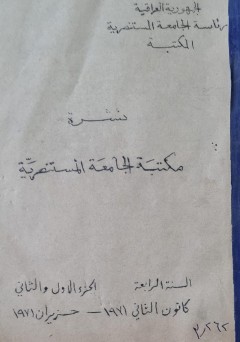 الجمهورية العراقية
رئاسة الجامعة المستنصرية
المكتبة
نشرة
مكتبة الجامعة المستنصرية
السنة الرابعة الجزء الاول والثاني
كانون الثاني ١٩٧١ – حزيران ١٩٧١